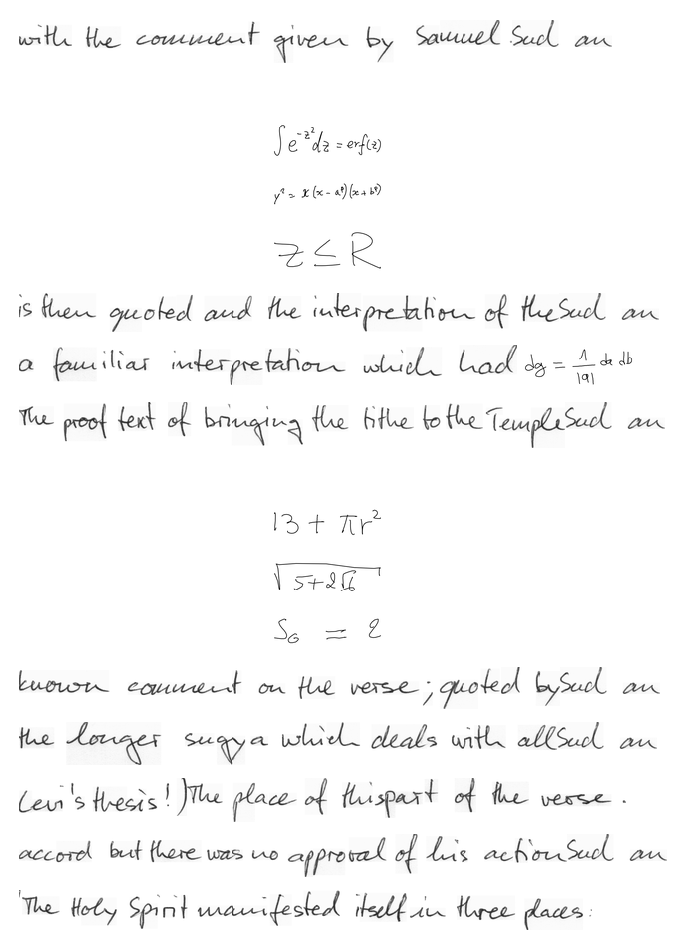 with the comment given by Samuel. Sud an
∫e^{-z^2}dz = erf(z)
y² = x(x - a^q)(x + b^q)
z ≤ R
is then quoted and the interpretation of the Sud an
a familiar interpretation which had dg = 1/|a| da db
The proof text of bringing the tithe to the Temple Sud an
13 + πr²
√(5+2√6)
S_G = 2
known comment on the verse; quoted by Sud an
the longer sugya which deals with all Sud an
Levi's thesis!) The place of this part of the verse.
accord but there was no approval of his action Sud an
'The Holy Spirit manifested itself in three places: